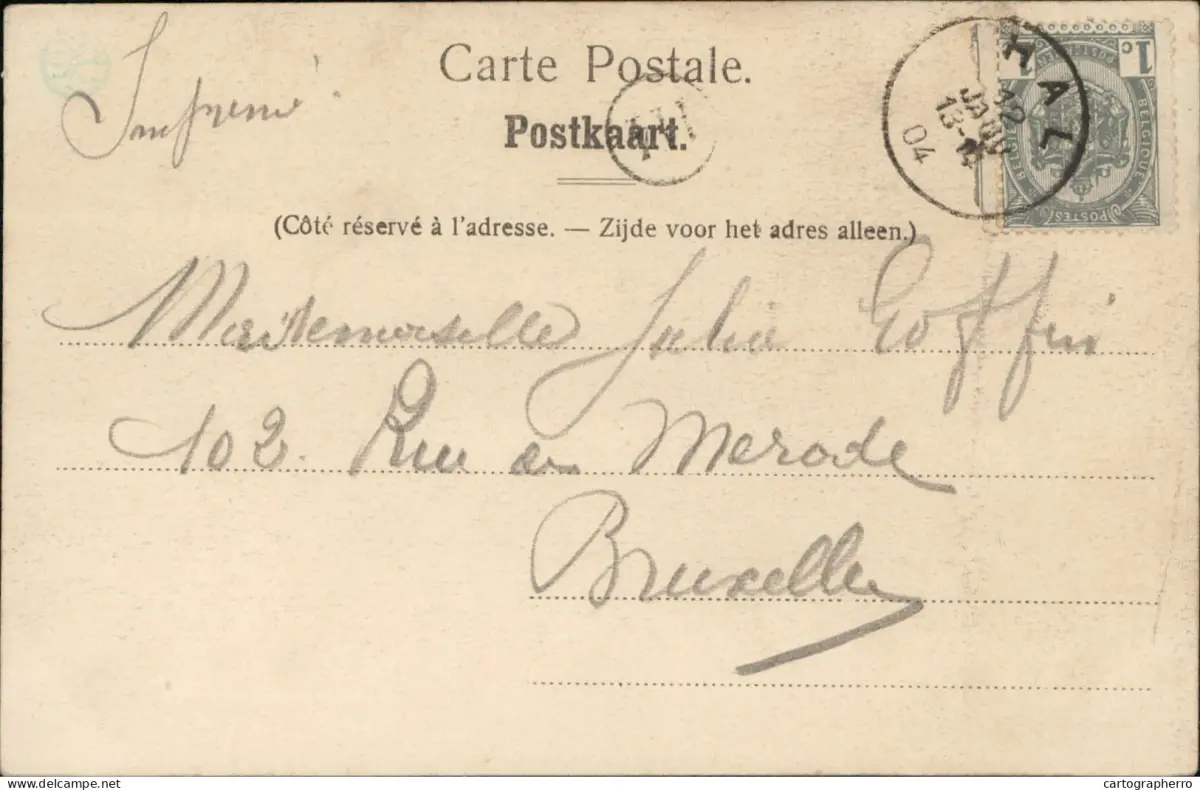 Imprimé
Carte Postale.
Postkaart.
(Côté réservé à l'adresse. — Zijde voor het adres alleen.)
HAL
12
JANV
13-
04
1c
1
BELGIQUE
POSTES
Mademoiselle Julia Goffin
102. Rue de Merode
Bruxelles
www.delcampe.net
cartographerro